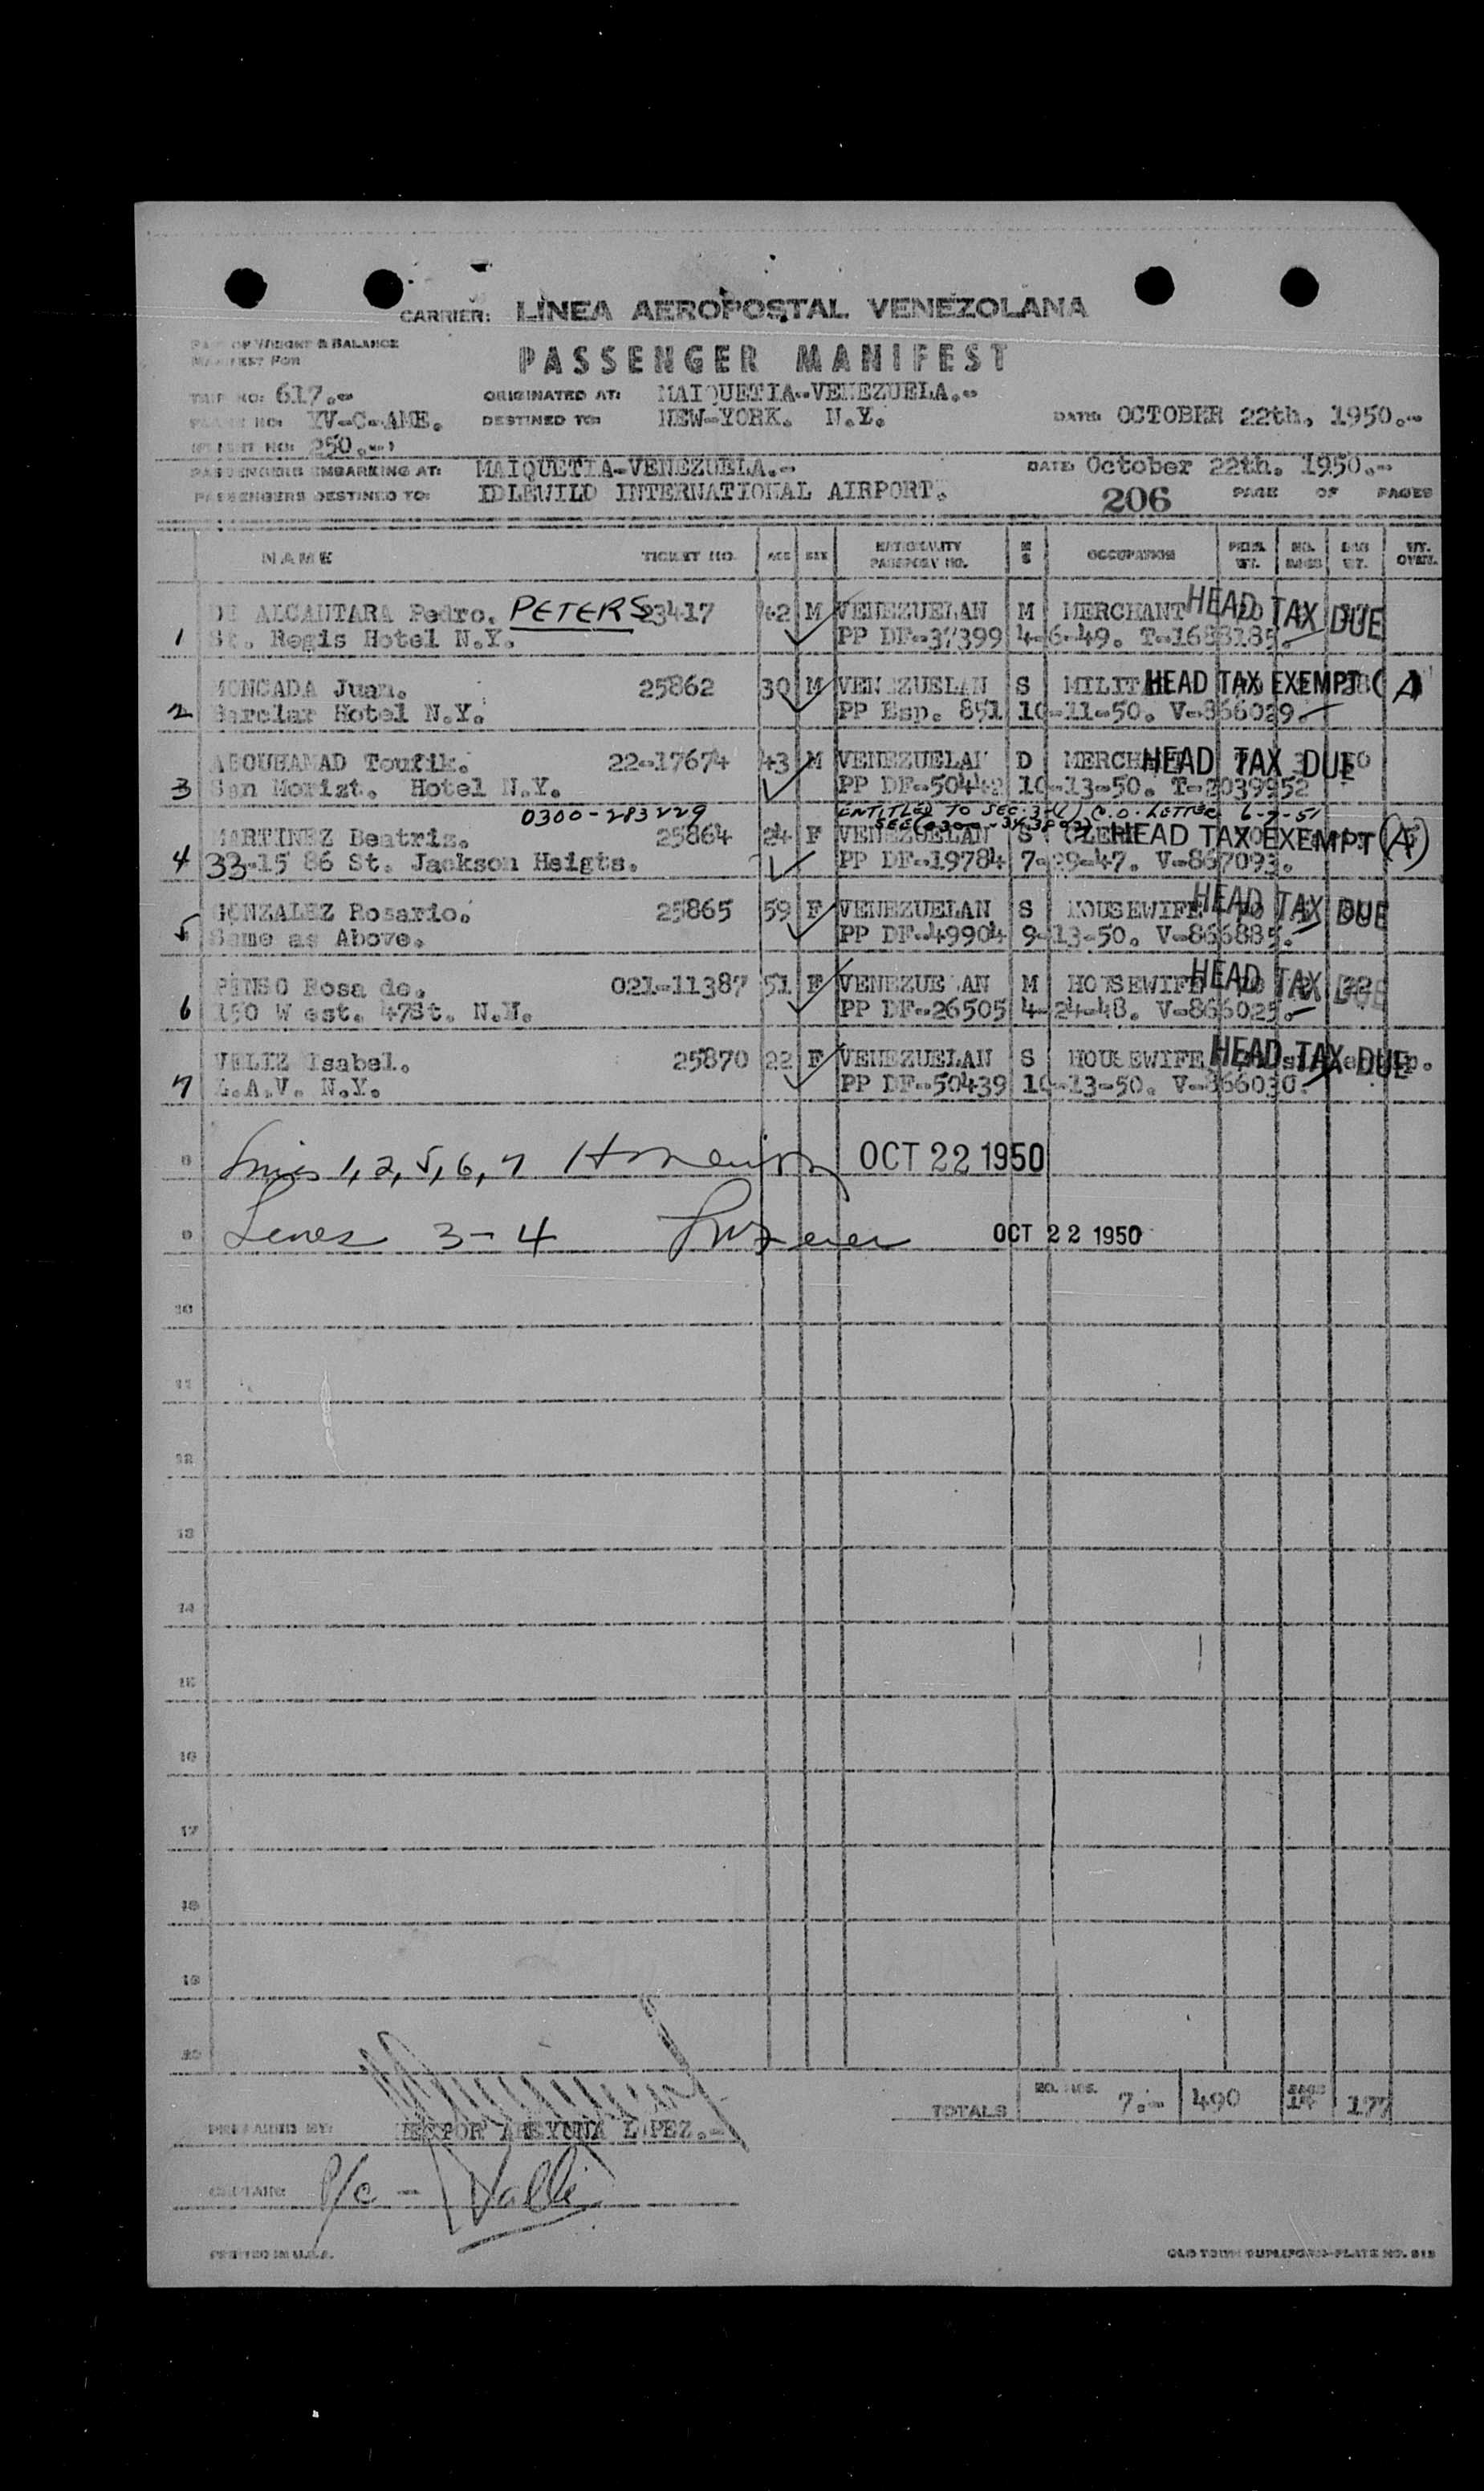 CARRIER: LINEA AEROPOSTAL VENEZOLANA
PART OF WEIGHT & BALANCE
MANIFEST FOR
PASSENGER MANIFEST
TRIP NO: 617.-
ORIGINATED AT: MAIQUETIA-VENEZUELA.-
PLANE NO: YV-C-AME.
DESTINED TO: NEW-YORK. N.Y.
DATE: OCTOBER 22th, 1950.-
NO: 250.-
PASSENGERS EMBARKING AT: MAIQUETIA-VENEZUELA.-
DATE: October 22th. 1950.-
PASSENGERS DESTINED TO: IDLEWILD INTERNATIONAL AIRPORT.
206 PAGE OF PAGES
NAME TICKET NO. AGE SEX NATIONALITY PASSPORT NO. M S OCCUPATION PERS. WT. NO. BAGS BAG WT. WT. OVER.
DE ALCAUTARA Pedro. PETERS 23417 42 M VENEZUELAN M MERCHANT HEAD TAX DUE
1 St. Regis Hotel N.Y. PP DF-37399 4-6-49. T-1688185.
MONCADA Juan. 25862 30 M VENEZUELAN S HEAD TAX EXEMPT (A)
2 Barclar Hotel N.Y. PP Esp. 851 10-11-50. V-866029.
ABOUHAMAD Toufik. 22-17674 43 M VENEZUELAN D MERCHANT HEAD TAX DUE
3 San Morizt. Hotel N.Y. PP DF-50442 10-13-50. T-2039952
0300-283229 ENTITLED TO SEC. 3 C.O. LETTER 6-7-51
MARTINEZ Beatriz. 25864 24 F VENEZUELAN S HEAD TAX EXEMPT (A)
4 33-15 86 St. Jackson Heigts. PP DF-19784 7-29-47. V-867093.
GONZALEZ Rosario. 25865 59 F VENEZUELAN S HOUSEWIFE HEAD TAX DUE
5 Same as Above. PP DF-49904 9-13-50. V-866885.
PINSO Rosa de. 021-11387 51 F VENEZUELAN M HOUSEWIFE HEAD TAX DUE
6 150 W est. 47St. N.Y. PP DF-26505 4-24-48. V-866025.
VELIZ Isabel. 25870 22 F VENEZUELAN S HOUSEWIFE HEAD TAX DUE
7 L.A.V. N.Y. PP DF-50439 10-13-50. V-866030.
8 Lines 1, 2, 5, 6, 7 OCT 22 1950
9 Lines 3-4 OCT 22 1950
10
11
12
13
14
15
16
17
18
19
20
TOTALS 7.- 490 BAGS 14 177
PREPARED BY: LOPEZ.-
CAPTAIN: P/c -
PRINTED IN U.S.A.
OLD TOWN PLATE NO. 513